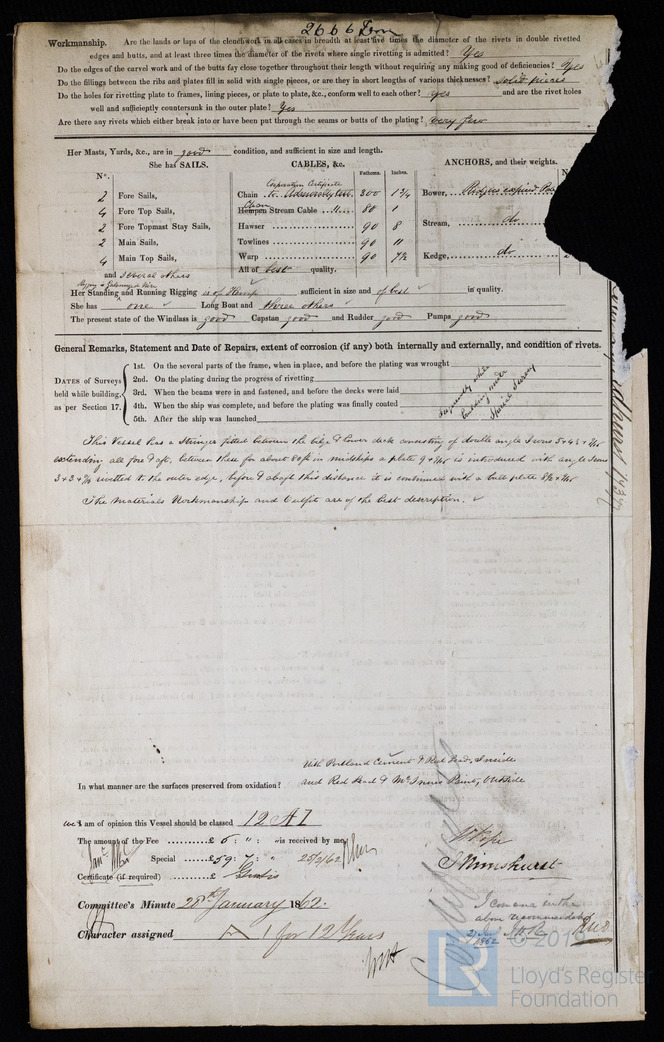 2666 Iron
Workmanship. Are the lands or laps of the clenchwork in all cases in breadth at least five times the diameter of the rivets in double rivetted
edges and butts, and at least three times the diameter of the rivets where single rivetting is admitted? Yes
Do the edges of the carvel work and of the butts fay close together throughout their length without requiring any making good of deficiencies? Yes
Do the fillings between the ribs and plates fill in solid with single pieces, or are they in short lengths of various thicknesses? solid pieces
Do the holes for rivetting plate to frames, lining pieces, or plate to plate, &c., conform well to each other? yes and are the rivet holes
well and sufficiently countersunk in the outer plate? Yes
Are there any rivets which either break into or have been put through the seams or butts of the plating? very few
Her Masts, Yards, &c., are in good condition, and sufficient in size and length.
She has SAILS. CABLES, &c. ANCHORS, and their weights.
N°. Fathoms. Inches. N
Corporation Certificate
2 Fore Sails, Chain to Admiralty test 300 1 3/4 Bower, Rodgers
Chain
4 Fore Top Sails, Hempen Stream Cable 80 1
2 Fore Topmast Stay Sails, Hawser 90 8 Stream, do
2 Main Sails, Towlines 90 11
4 Main Top Sails, Warp 90 7½ Kedge, do
and several others All of best quality.
Her Standing and Running Rigging is of Hemp sufficient in size and of best in quality.
She has one Long Boat and three others
The present state of the Windlass is good Capstan good and Rudder good Pumps good
General Remarks, Statement and Date of Repairs, extent of corrosion (if any) both internally and externally, and condition of rivets.
DATES of Surveys held while building, as per Section 17.
1st. On the several parts of the frame, when in place, and before the plating was wrought
2nd. On the plating during the progress of rivetting
3rd. When the beams were in and fastened, and before the decks were laid
4th. When the ship was complete, and before the plating was finally coated
5th. After the ship was launched
Frequently while
building under
Special Survey
This Vessel has a Stringer fitted between the bilge & lower deck consisting of double angle Irons
extending all fore & aft, between these for about 80 ft in midships a plate is introduced with angle Irons
rivetted to the outer edge, before & abaft this distance it is continued with a bulb plate
The Materials Workmanship and Outfit are of the best description.
In what manner are the surfaces preserved from oxidation? with Portland Cement & Red Lead, Inside
and Red Lead & McInnes Paint, Outside
we I am of opinion this Vessel should be classed 12 A1
The amount of the Fee £5 : " : " is received by me,
Special £59 : 7 : " 25/2/62
Certificate (if required) £ Gratis
Committee's Minute 28th January 1862.
Character assigned A 1 for 12 Years
I concur in the
above recommendation
1862
© 2019
LR
Lloyd's Register
Foundation